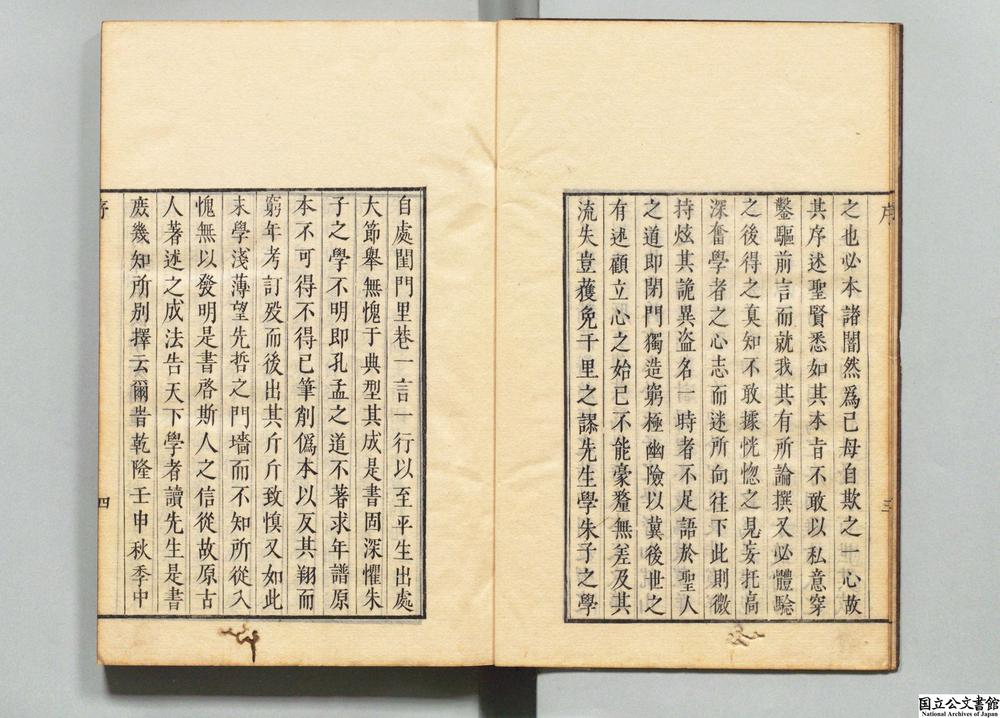 序
之也必本諸闇然爲己毋自欺之一心故
其序述聖賢悉如其本旨不敢以私意穿
鑿驅前言而就我其有所論撰又必體騐
之後得之真知不敢據恍惚之見妄托高
深奮學者之心志而迷所向往下此則微
持炫其詭異盜名一時者不足語於聖人
之道即閉門獨造窮極幽險以冀後世之
有述顧立心之始已不能豪釐無差及其
流失豈獲免千里之謬先生學朱子之學
三
自處閨門里巷一言一行以至平生出處
大節舉無愧于典型其成是書固深懼朱
子之學不明即孔孟之道不著求年譜原
本不可得不得已筆削僞本以反其朔而
窮年考訂殁而後出其斤斤致慎又如此
末學淺薄望先哲之門墻而不知所從入
愧無以發明是書啓斯人之信從故原古
人著述之成法告天下學者讀先生是書
庶幾知所別擇云爾旹乾隆壬申秋季中
序
四
国立公文書館
National Archives of Japan